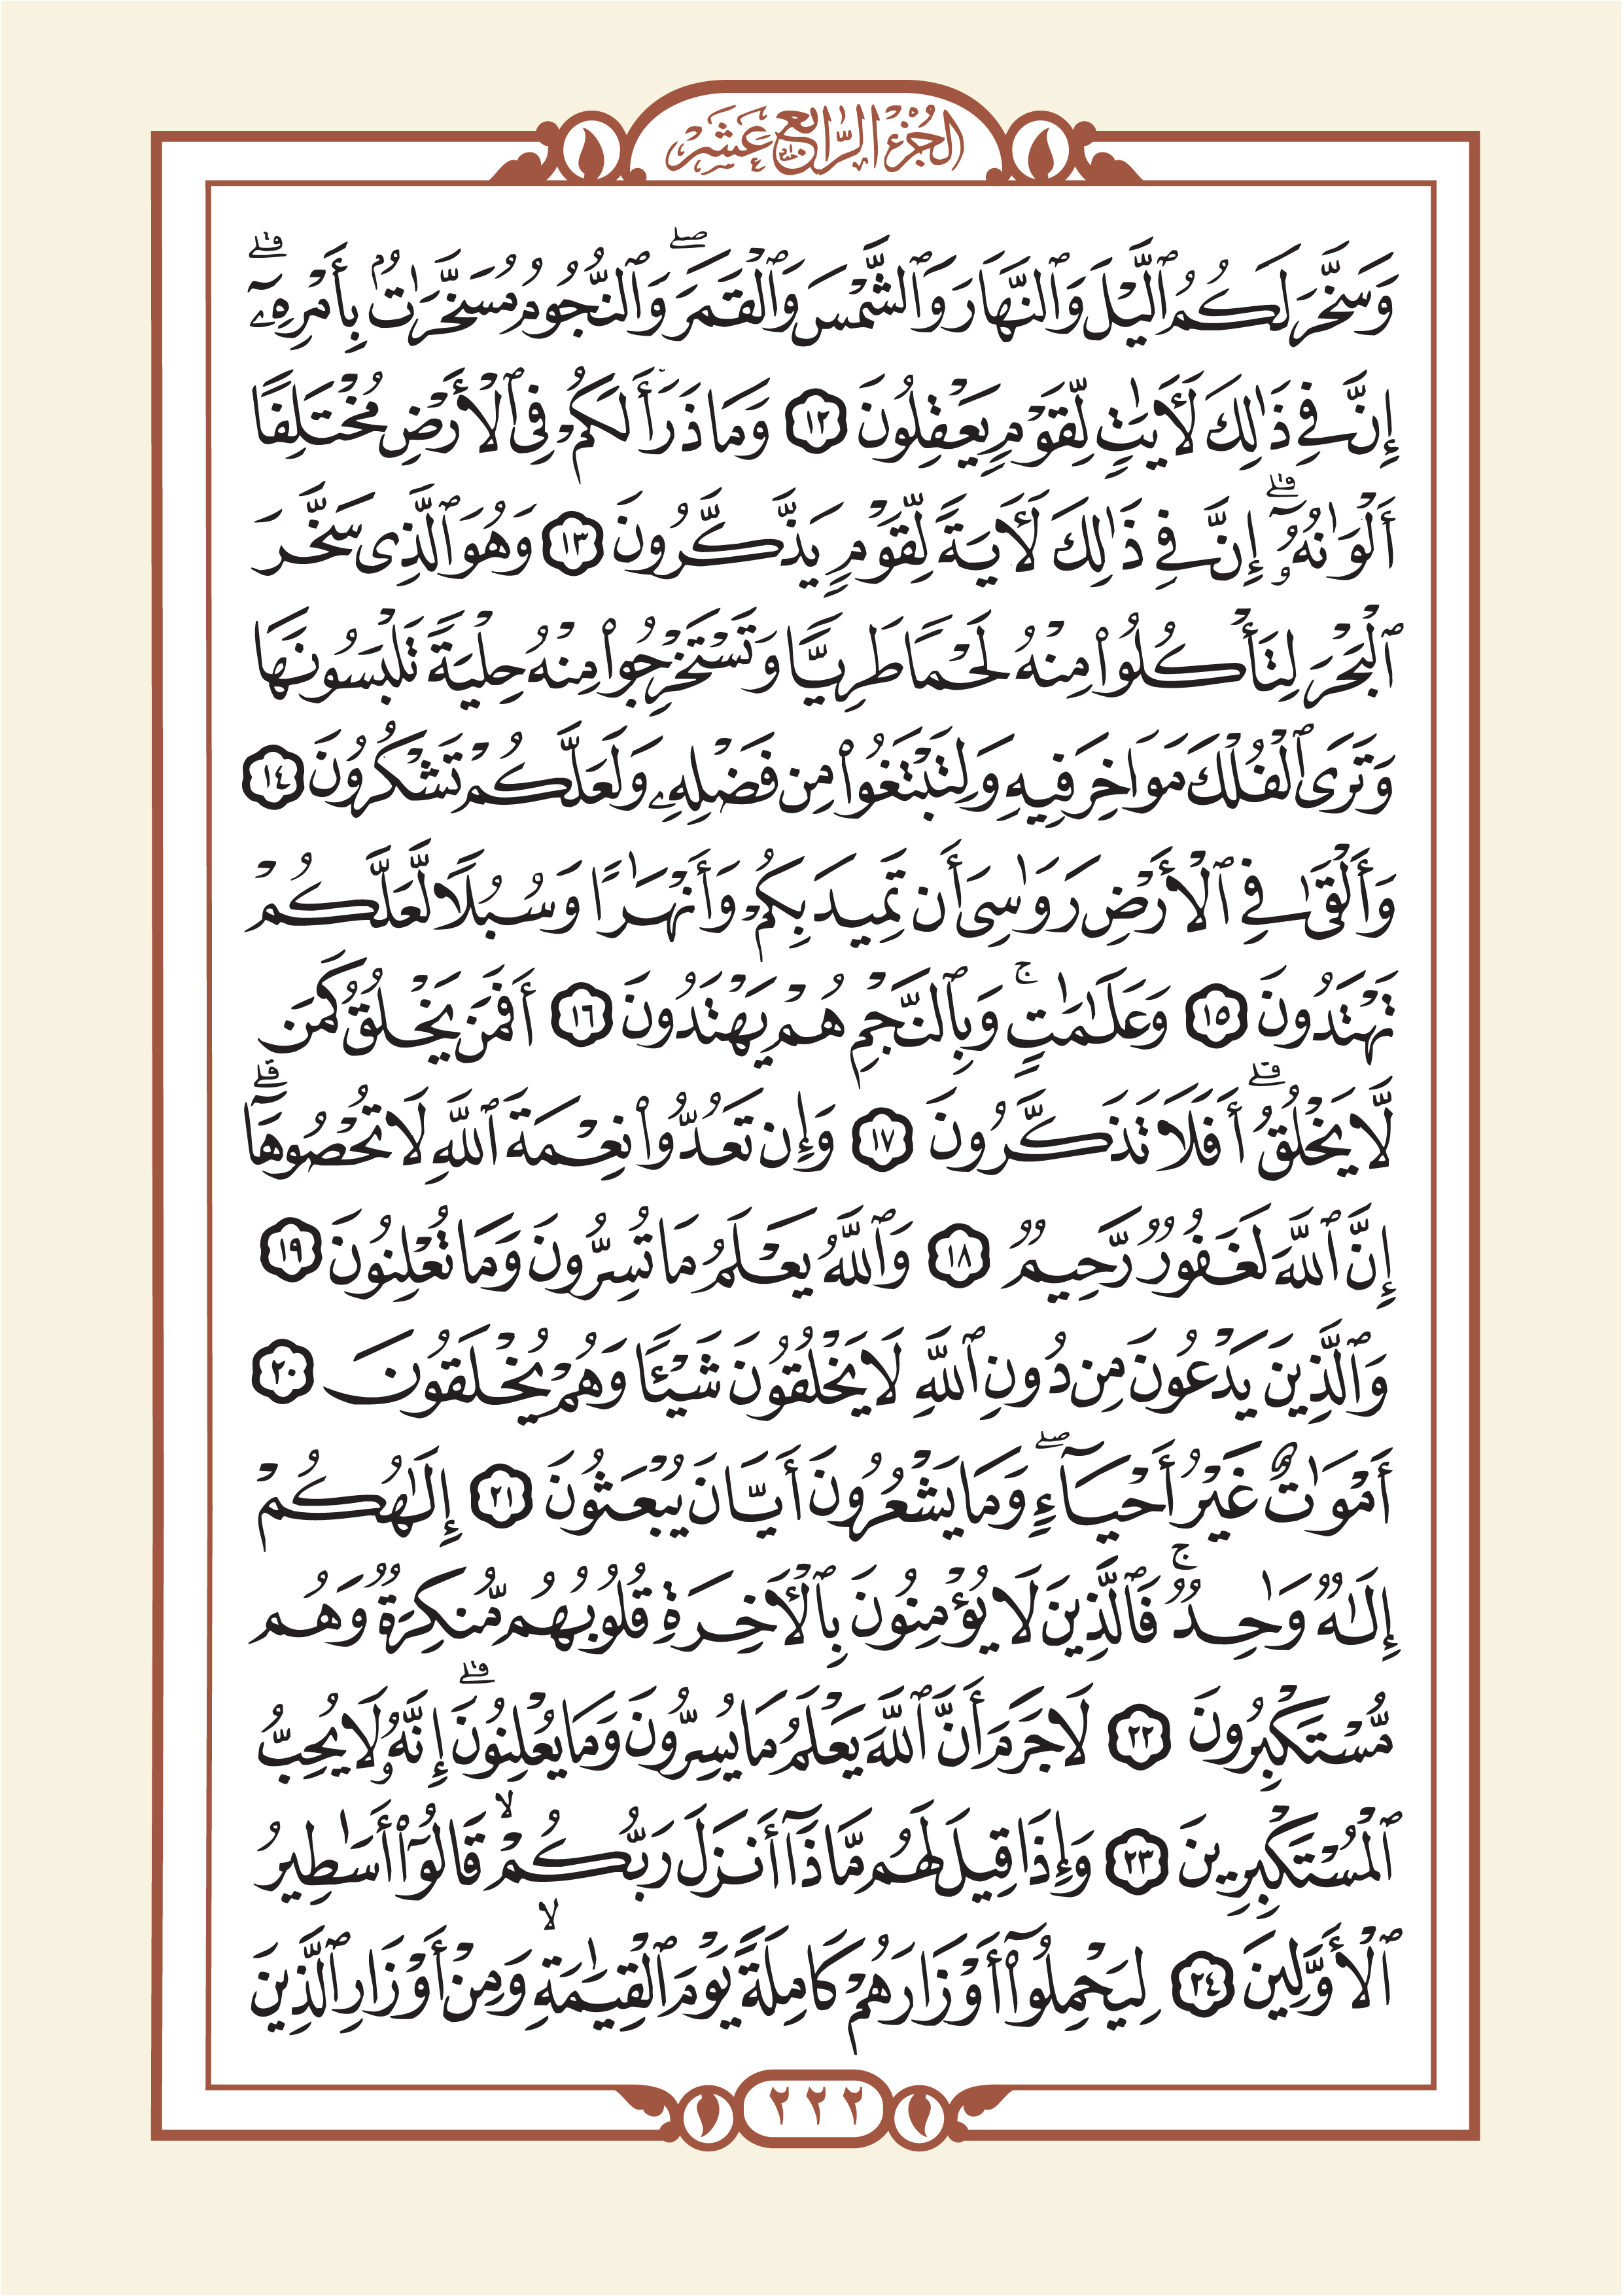 الجزء الرابع عشر
وَسَخَّرَ لَكُمُ ٱلَّيْلَ وَٱلنَّهَارَ وَٱلشَّمْسَ وَٱلْقَمَرَ ۖ وَٱلنُّجُومُ مُسَخَّرَٰتٌۢ بِأَمْرِهِۦٓ ۗ
إِنَّ فِي ذَٰلِكَ لَأٓيَٰتٍ لِّقَوْمٍ يَعْقِلُونَ ١٢ وَمَا ذَرَأَ لَكُمْ فِى ٱلْأَرْضِ مُخْتَلِفًا
أَلْوَٰنُهُۥٓ ۗ إِنَّ فِي ذَٰلِكَ لَأٓيَةً لِّقَوْمٍ يَذَّكَّرُونَ ١٣ وَهُوَ ٱلَّذِى سَخَّرَ
ٱلْبَحْرَ لِتَأْكُلُوا۟ مِنْهُ لَحْمًا طَرِيًّا وَتَسْتَخْرِجُوا۟ مِنْهُ حِلْيَةً تَلْبَسُونَهَا
وَتَرَى ٱلْفُلْكَ مَوَاخِرَ فِيهِ وَلِتَبْتَغُوا۟ مِن فَضْلِهِۦ وَلَعَلَّكُمْ تَشْكُرُونَ ١٤
وَأَلْقَىٰ فِي ٱلْأَرْضِ رَوَٰسِىَ أَن تَمِيدَ بِكُمْ وَأَنْهَٰرًا وَسُبُلًا لَّعَلَّكُمْ
تَهْتَدُونَ ١٥ وَعَلَٰمَٰتٍ ۚ وَبِٱلنَّجْمِ هُمْ يَهْتَدُونَ ١٦ أَفَمَن يَخْلُقُ كَمَن
لَّا يَخْلُقُ ۗ أَفَلَا تَذَكَّرُونَ ١٧ وَإِن تَعُدُّوا۟ نِعْمَةَ ٱللَّهِ لَا تُحْصُوهَآ ۗ
إِنَّ ٱللَّهَ لَغَفُورٌ رَّحِيمٌ ١٨ وَٱللَّهُ يَعْلَمُ مَا تُسِرُّونَ وَمَا تُعْلِنُونَ ١٩
وَٱلَّذِينَ يَدْعُونَ مِن دُونِ ٱللَّهِ لَا يَخْلُقُونَ شَيْـًٔا وَهُمْ يُخْلَقُونَ ٢٠
أَمْوَٰتٌ غَيْرُ أَحْيَآءٍ ۖ وَمَا يَشْعُرُونَ أَيَّانَ يُبْعَثُونَ ٢١ إِلَٰهُكُمْ
إِلَٰهٌ وَٰحِدٌ ۚ فَٱلَّذِينَ لَا يُؤْمِنُونَ بِٱلْأٓخِرَةِ قُلُوبُهُم مُّنكِرَةٌ وَهُم
مُّسْتَكْبِرُونَ ٢٢ لَا جَرَمَ أَنَّ ٱللَّهَ يَعْلَمُ مَا يُسِرُّونَ وَمَا يُعْلِنُونَ ۗ إِنَّهُۥ لَا يُحِبُّ
ٱلْمُسْتَكْبِرِينَ ٢٣ وَإِذَا قِيلَ لَهُم مَّاذَآ أَنزَلَ رَبُّكُمْ ۙ قَالُوٓا۟ أَسَٰطِيرُ
ٱلْأَوَّلِينَ ٢٤ لِيَحْمِلُوٓا۟ أَوْزَارَهُمْ كَامِلَةً يَوْمَ ٱلْقِيَٰمَةِ ۙ وَمِنْ أَوْزَارِ ٱلَّذِينَ
٢٢٢